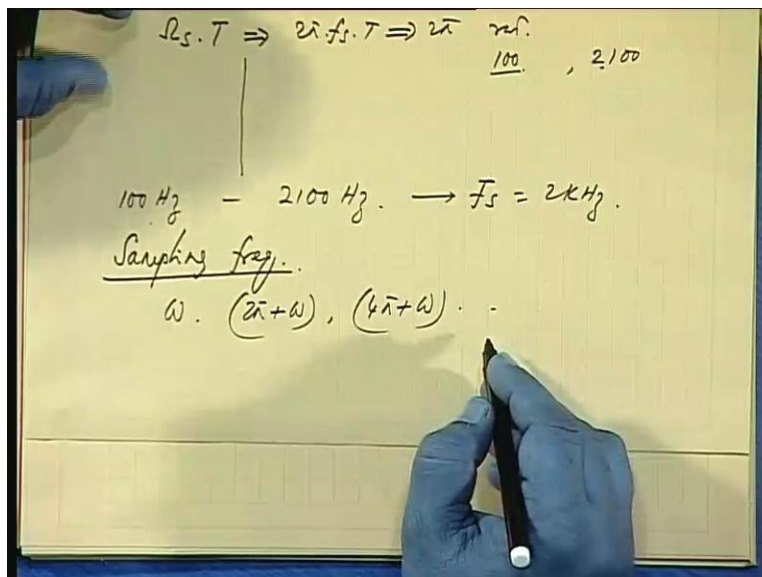 Ωs.T ⇒ 2π.fs.T ⇒ 2π rad.
100. , 2100
100 Hz - 2100 Hz. → Fs = 2KHz.
Sampling freq.
ω. (2π+ω), (4π+ω) . .